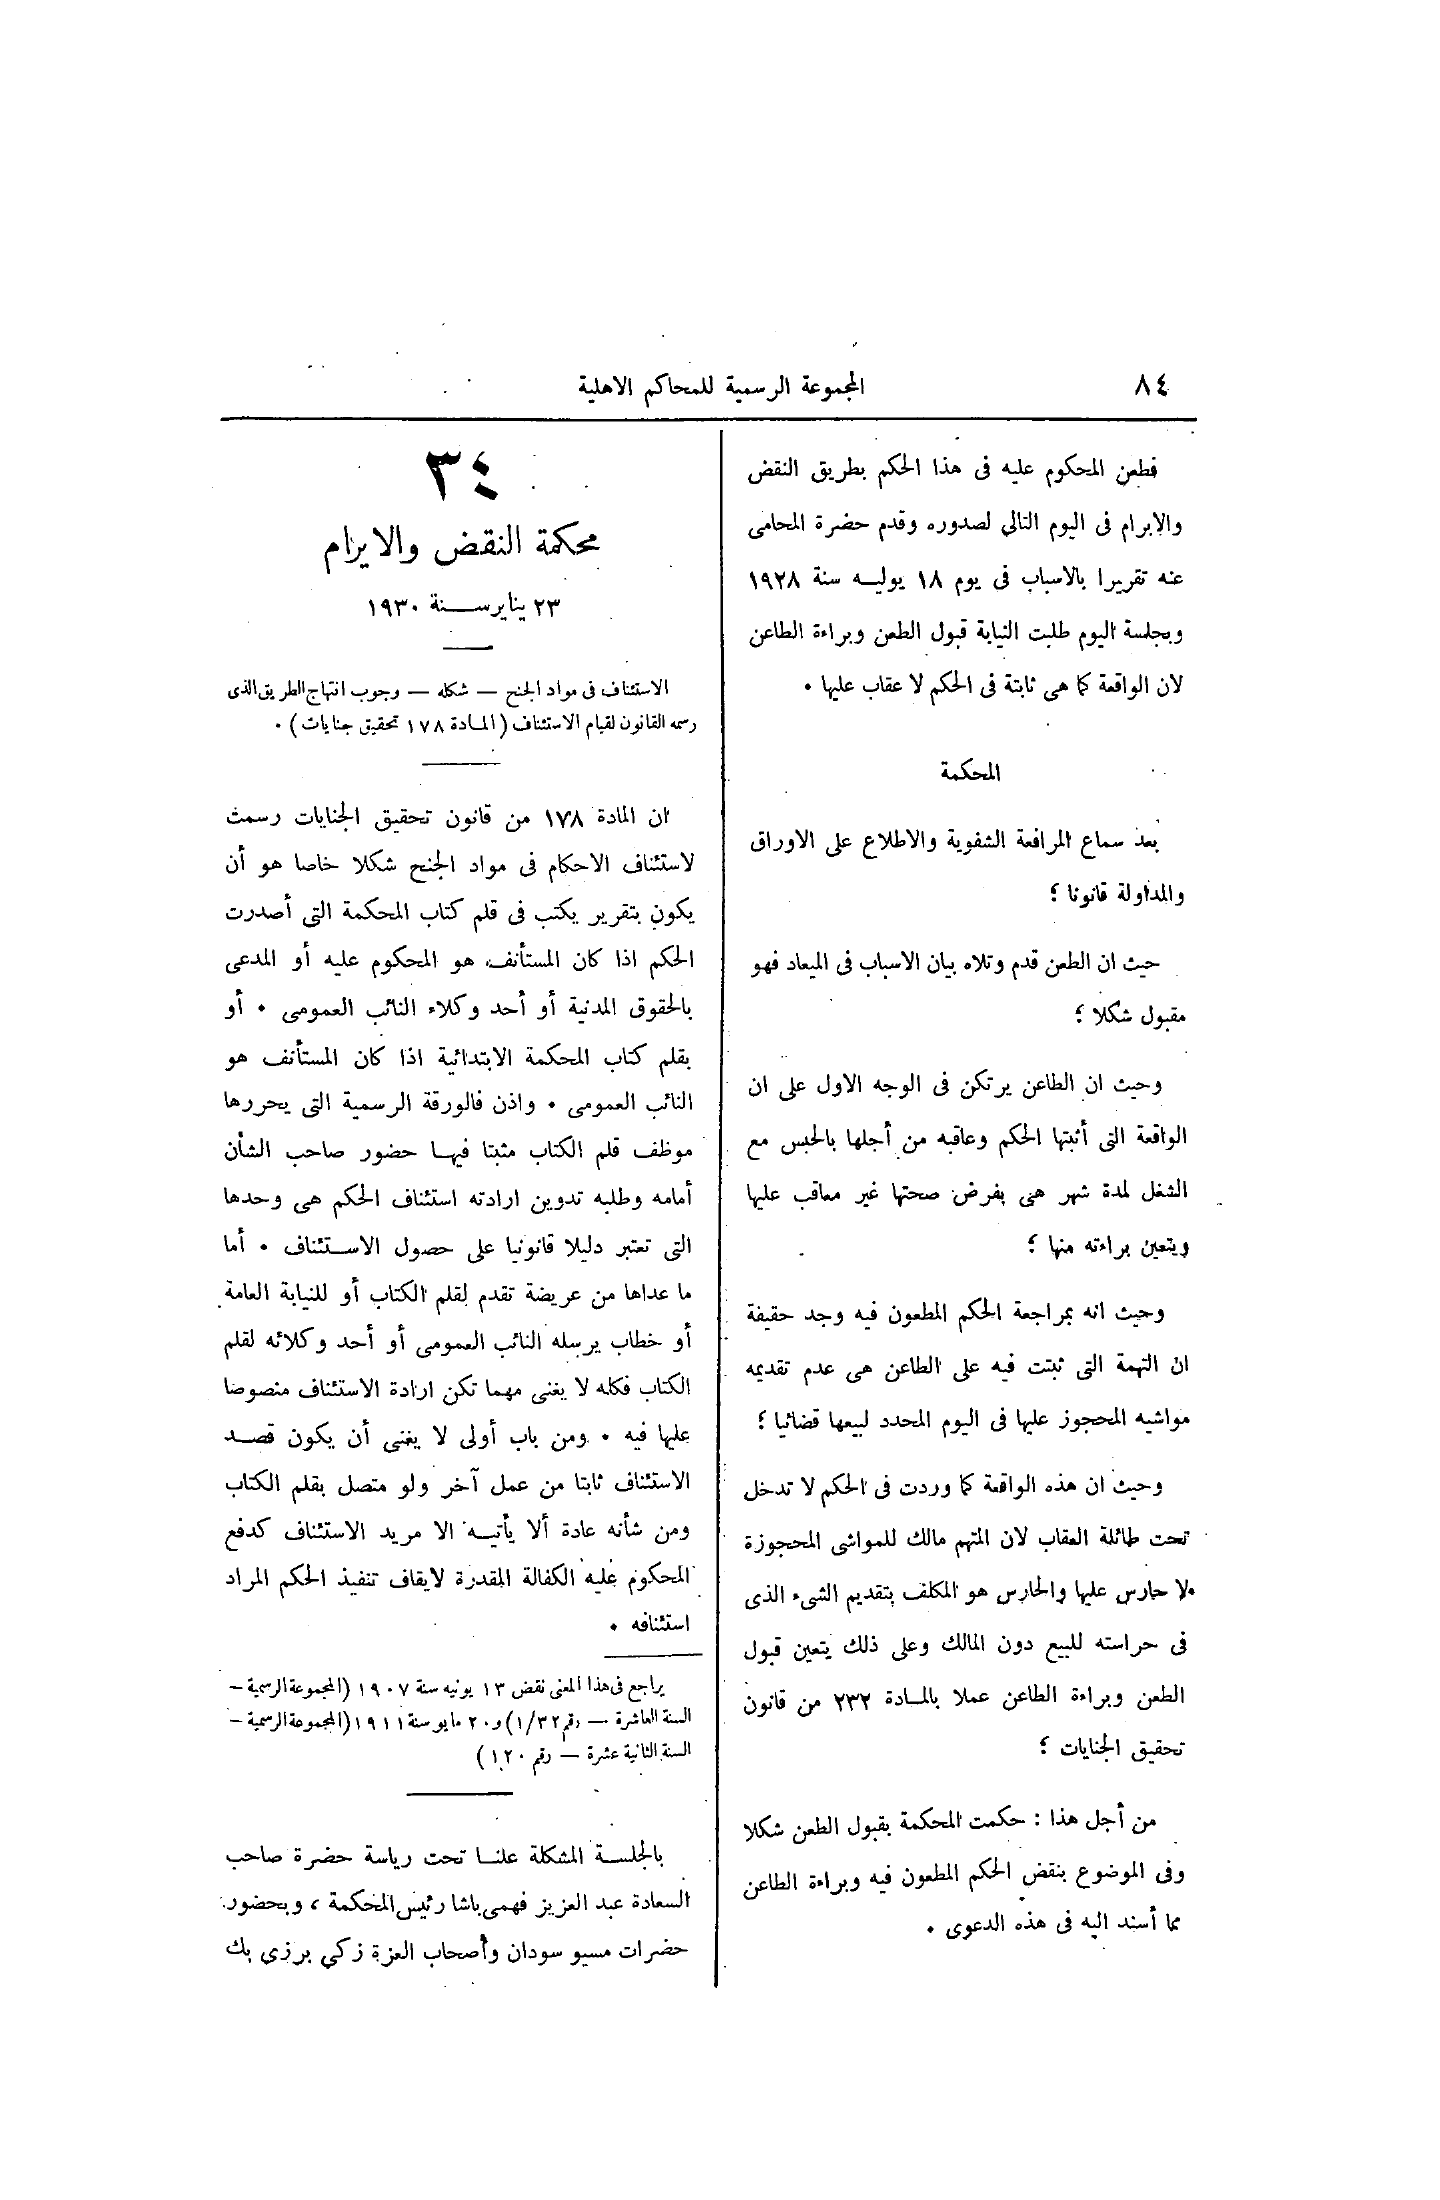 ٨٤
المجموعة الرسمية للمحاكم الاهلية
فطعن المحكوم عليه فى هذا الحكم بطريق النقض
والابرام فى اليوم التالي لصدوره وقدم حضرة المحامى
عنه تقريرا بالاسباب فى يوم ١٨ يوليه سنة ١٩٢٨
وبجلسة اليوم طلبت النيابة قبول الطعن وبراءة الطاعن
لان الواقعة كما هى ثابتة فى الحكم لا عقاب عليها ٠
المحكمة
بعد سماع المرافعة الشفوية والاطلاع على الاوراق
والمداولة قانونا ؛
حيث ان الطعن قدم وتلاه بيان الاسباب فى الميعاد فهو
مقبول شكلا ؛
وحيث ان الطاعن يرتكن فى الوجه الاول على ان
الواقعة التى أثبتها الحكم وعاقبه من أجلها بالحبس مع
الشغل لمدة شهر هى بفرض صحتها غير معاقب عليها
ويتعين براءته منها ؛
وحيث انه بمراجعة الحكم المطعون فيه وجد حقيقة
ان التهمة التى ثبتت فيه على الطاعن هى عدم تقديمه
مواشيه المحجوز عليها فى اليوم المحدد لبيعها قضائيا ؛
وحيث ان هذه الواقعة كما وردت فى الحكم لا تدخل
تحت طائلة العقاب لان المتهم مالك للمواشى المحجوزة
لا حارس عليها والحارس هو المكلف بتقديم الشىء الذى
فى حراسته للبيع دون المالك وعلى ذلك يتعين قبول
الطعن وبراءة الطاعن عملا بالمادة ٢٣٢ من قانون
تحقيق الجنايات ؛
من أجل هذا : حكمت المحكمة بقبول الطعن شكلا
وفى الموضوع بنقض الحكم المطعون فيه وبراءة الطاعن
مما أسند اليه فى هذه الدعوى ٠
٣٤
محكمة النقض والابرام
٢٣ يناير سنة ١٩٣٠
الاستئناف فى مواد الجنح — شكله — وجوب انتهاج الطريق الذى
رسمه القانون لقيام الاستئناف ( المادة ١٧٨ تحقيق جنايات ) ٠
ان المادة ١٧٨ من قانون تحقيق الجنايات رسمت
لاستئناف الاحكام فى مواد الجنح شكلا خاصا هو أن
يكون بتقرير يكتب فى قلم كتاب المحكمة التى أصدرت
الحكم اذا كان المستأنف هو المحكوم عليه أو المدعى
بالحقوق المدنية أو أحد وكلاء النائب العمومى ٠ أو
بقلم كتاب المحكمة الابتدائية اذا كان المستأنف هو
النائب العمومى ٠ واذن فالورقة الرسمية التى يحررها
موظف قلم الكتاب مثبتا فيها حضور صاحب الشأن
أمامه وطلبه تدوين ارادته استئناف الحكم هى وحدها
التى تعتبر دليلا قانونيا على حصول الاستئناف ٠ أما
ما عداها من عريضة تقدم لقلم الكتاب أو للنيابة العامة
أو خطاب يرسله النائب العمومى أو أحد وكلائه لقلم
الكتاب فكله لا يغنى مهما تكن ارادة الاستئناف منصوصا
عليها فيه ٠ ومن باب أولى لا يغنى أن يكون قصد
الاستئناف ثابتا من عمل آخر ولو متصل بقلم الكتاب
ومن شأنه عادة ألا يأتيه الا مريد الاستئناف كدفع
المحكوم عليه الكفالة المقدرة لايقاف تنفيذ الحكم المراد
استئنافه ٠
يراجع فى هذا المعنى نقض ١٣ يونيه سنة ١٩٠٧ (المجموعة الرسمية —
السنة العاشرة — رقم ١/٣٢) و٢٠ مايو سنة ١٩١١ (المجموعة الرسمية —
السنة الثانية عشرة — رقم ١٢٠)
بالجلسة المشكلة علنا تحت رياسة حضرة صاحب
السعادة عبد العزيز فهمى باشا رئيس المحكمة ، وبحضور
حضرات مسيو سودان وأصحاب العزة زكي برزي بك